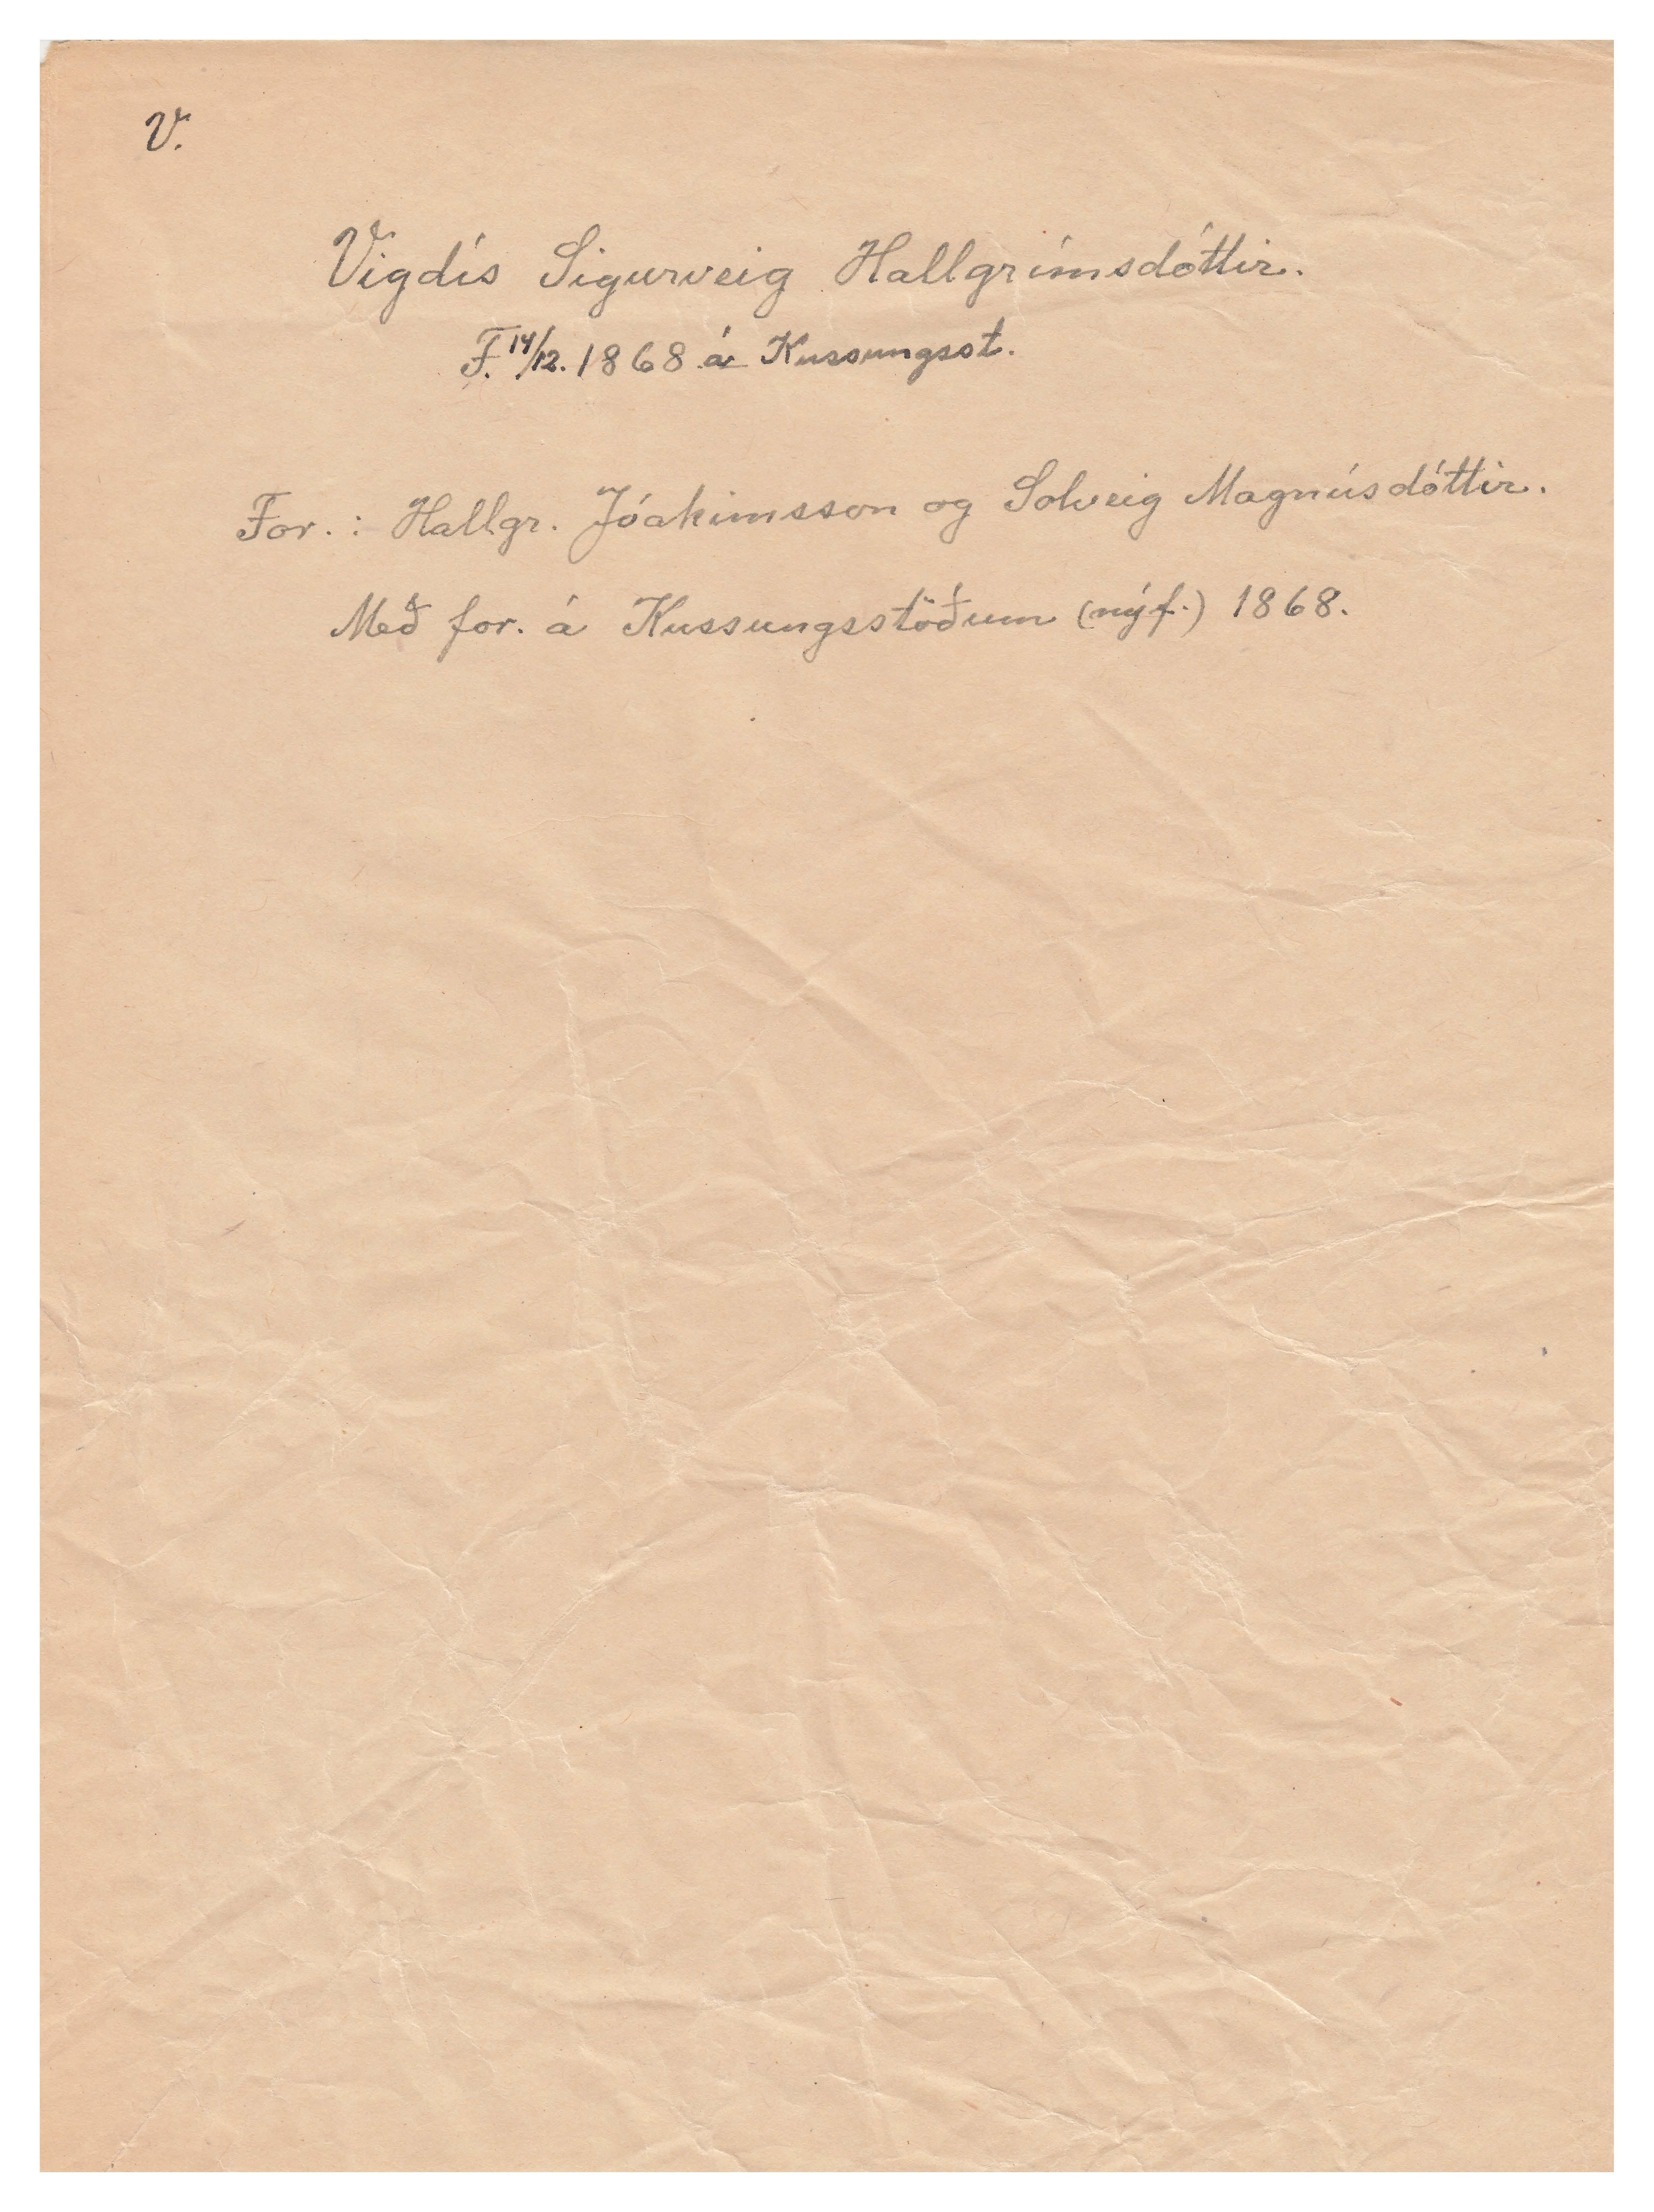 V.
Vigdís Sigurveig Hallgrímsdóttir.
F. 14/12. 1868 á Kussungsst.
For.: Hallgr. Jóakimsson og Solveig Magnúsdóttir.
Með for. á Kussungsstöðum (nýf.) 1868.